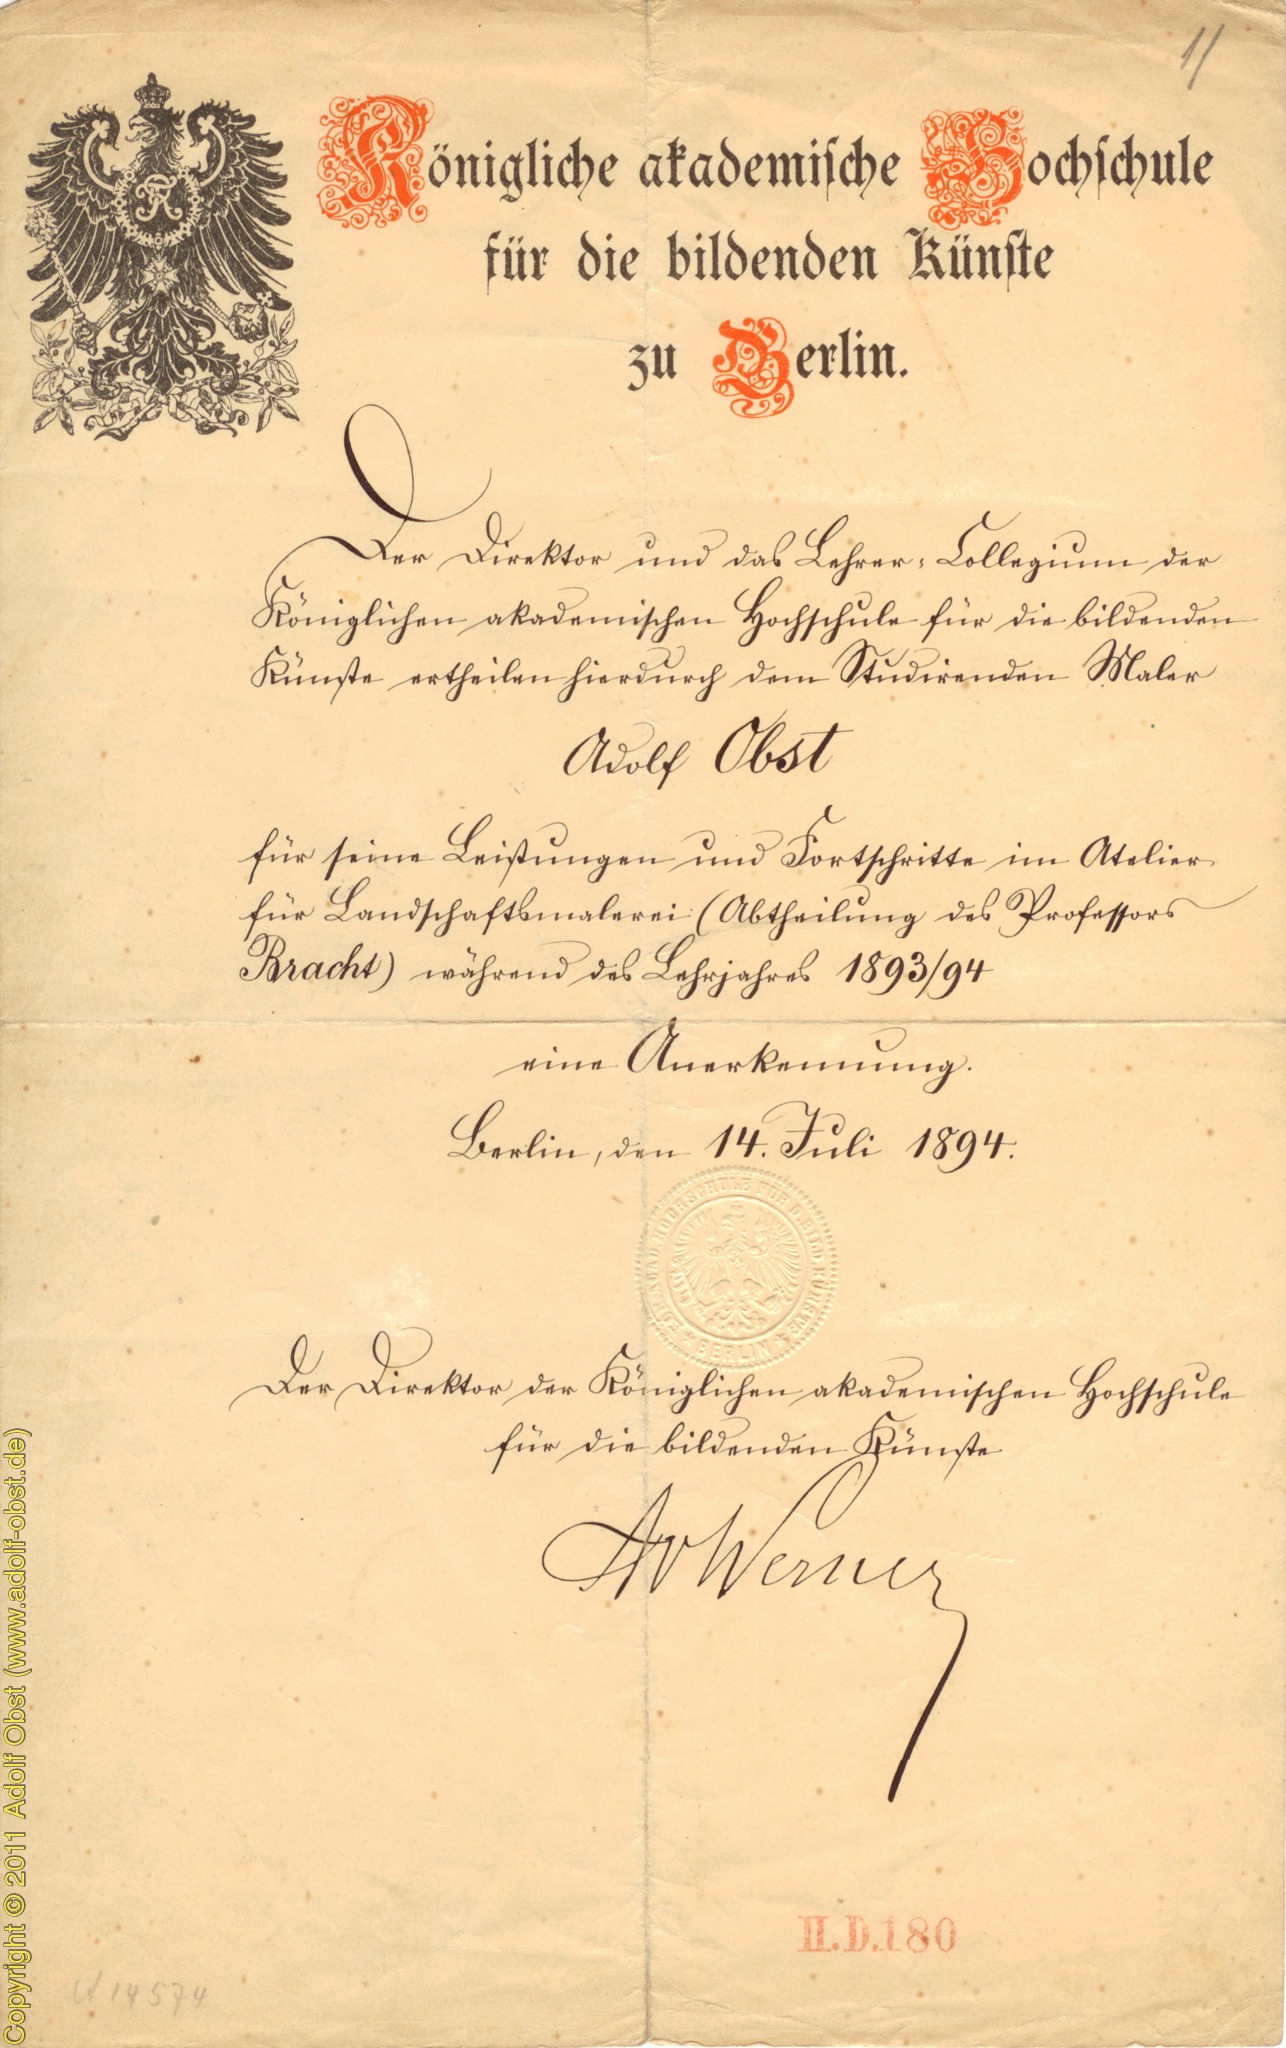 11
Königliche akademische Hochschule
für die bildenden Künste
zu Berlin.
Der Direktor und das Lehrer-Collegium der
Königlichen akademischen Hochschule für die bildenden
Künste ertheilen hierdurch dem Studirenden Maler
Adolf Obst
für seine Leistungen und Fortschritte im Atelier
für Landschaftsmalerei (Abtheilung des Professors
Bracht) während des Lehrjahres 1893/94
eine Anerkennung.
Berlin, den 14. Juli 1894.
HOCHSCHULE FÜR D. BILD. KÜNSTE
* BERLIN *
Der Direktor der Königlichen akademischen Hochschule
für die bildenden Künste
AvWerner
II.D.180
14574
Copyright © 2011 Adolf Obst (www.adolf-obst.de)